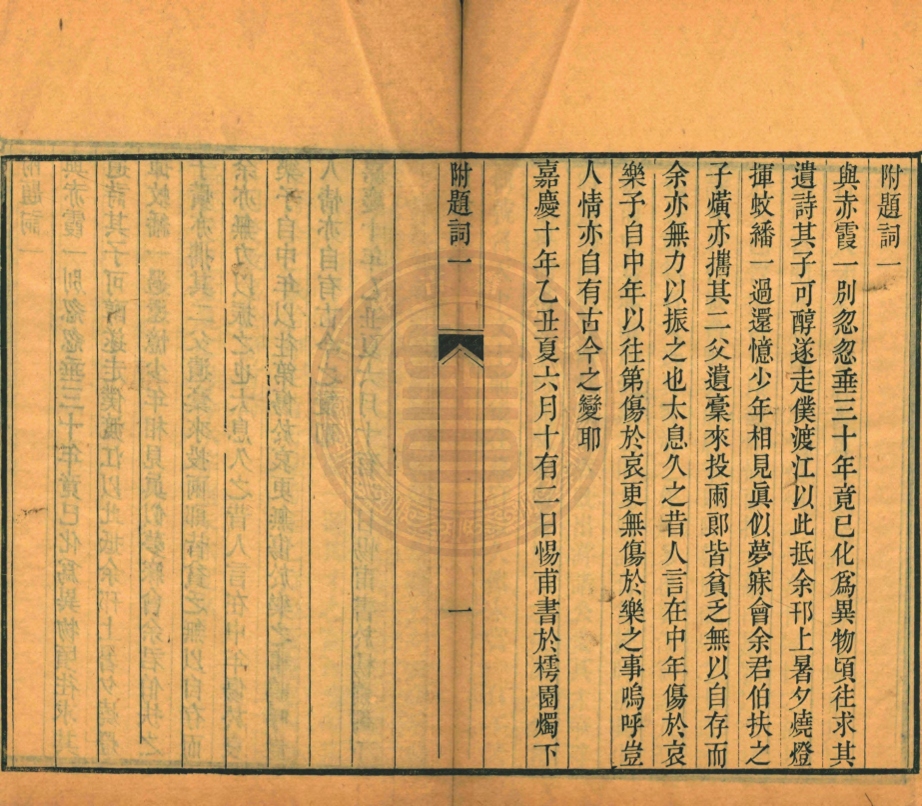 附題詞一
與赤霞一別忽忽垂三十年竟已化爲異物頃往求其
遺詩其子可醇遂走僕渡江以此抵余邗上暑夕燒燈
揮蚊繙一過還憶少年相見眞似夢寐會余君伯扶之
子燌亦攜其二父遺稾來投兩郞皆貧乏無以自存而
余亦無力以振之也太息久之昔人言在中年傷於哀
樂予自中年以往第傷於哀更無傷於樂之事嗚呼豈
人情亦自有古今之變耶
嘉慶十年乙丑夏六月十有二日惕甫書於樗園燭下
附題詞一
一